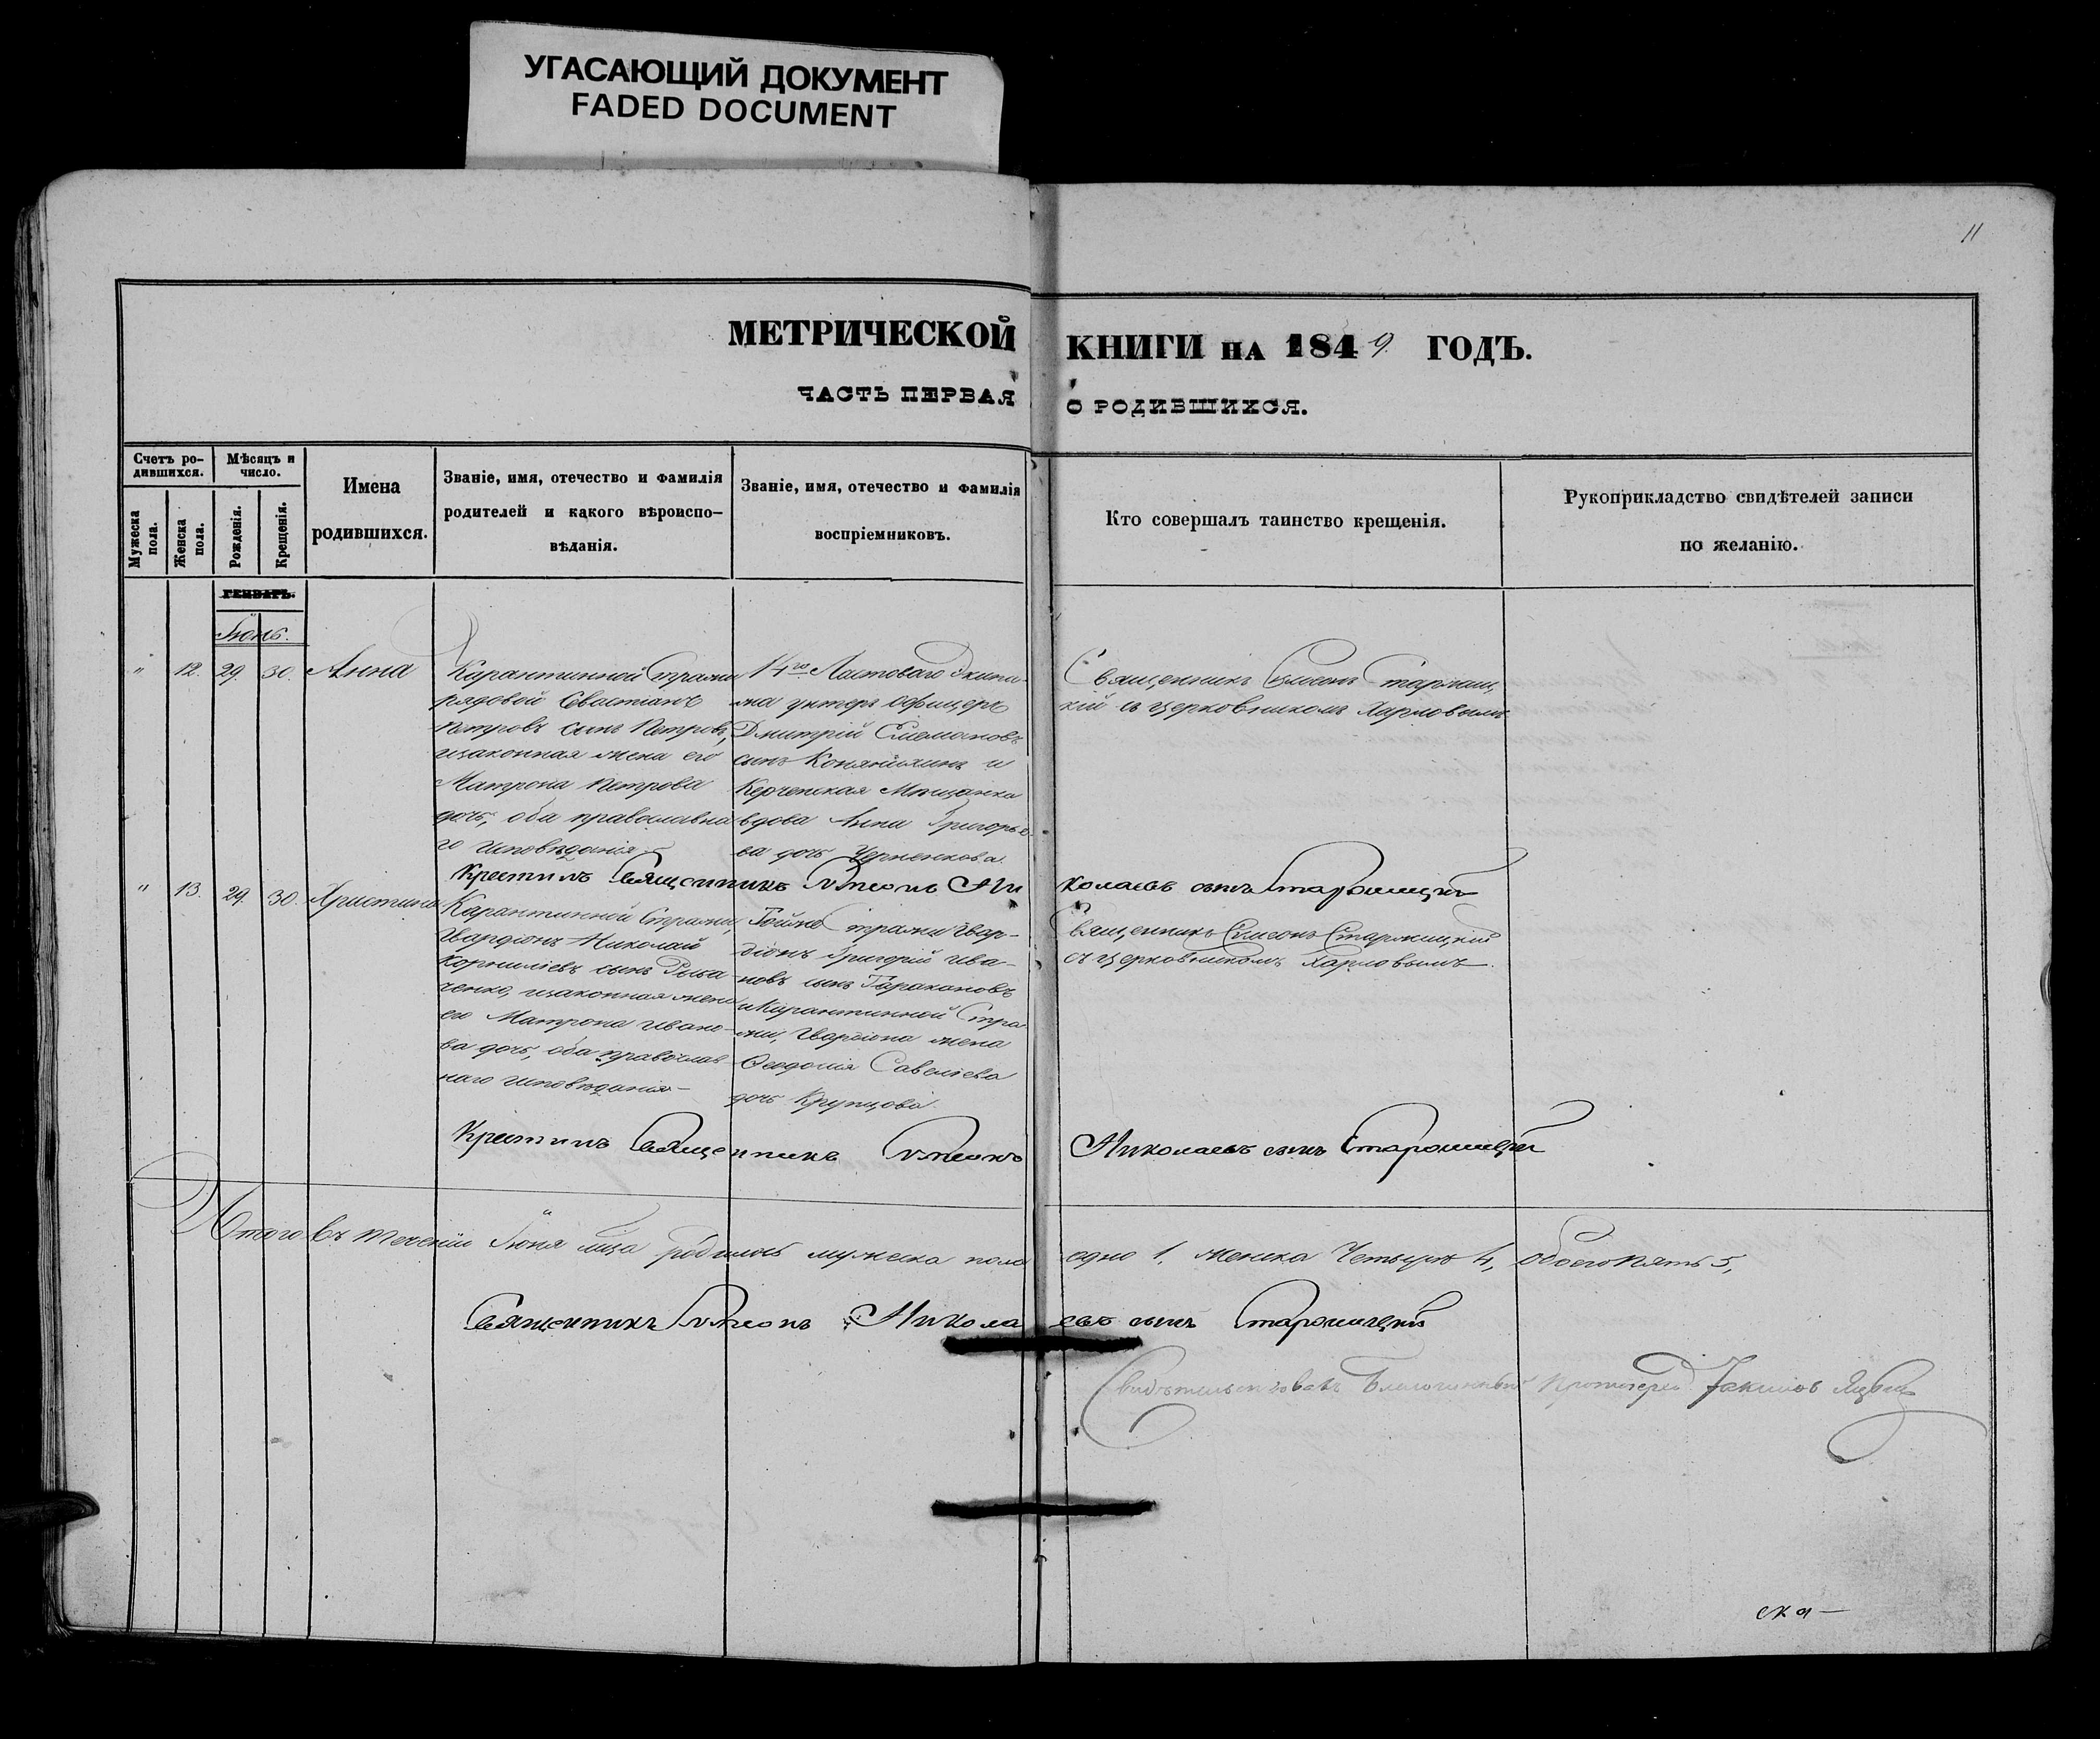 УГАСАЮЩИЙ ДОКУМЕНТ
FADED DOCUMENT
11
МЕТРИЧЕСКОЙ КНИГИ НА 1849. ГОДЪ.
ЧАСТЬ ПЕРВАЯ О РОДИВШИХСЯ.
Счетъ ро-
дившихся.
Мужеска
пола.
Женска
пола.
Мѣсяцъ и
число.
Рожденія.
Крещенія.
Имена
родившихся.
Званіе, имя, отечество и фамилія
родителей и какого вѣроиспо-
вѣданія.
Званіе, имя, отечество и фамилія
воспріемниковъ.
Кто совершалъ таинство крещенія.
Рукоприкладство свидѣтелей записи
по желанію.
ГЕНВАРЬ.
Іюнь.
" 12. 29. 30. Анна
Карантинной Стражи
рядовой Севастіанъ
Петровъ сынъ Петровъ,
изаконная жена его
Матрона Петрова
дочь, оба православна
го исповѣданія
14го Ластоваго Экипа-
жа унтеръ Офицеръ
Дмитрій
сынъ и
Керченская Мѣщанка
вдова Анна Григорье-
ва дочь Черненкова.
Священникъ Сѵмеонъ Старжиц
кій съ церковникомъ Харловымъ
Крестилъ Священникъ Сѵмеонъ Ни
колаевъ сынъ Старжицкій
" 13. 29. 30. Христина
Карантинной Стражи,
Гвардіонъ Николай
Корниліевъ сынъ
ченко, изаконная жена
его Матрона Ивано-
ва дочь, оба православ
наго исповѣданія —
Тойже Стражи Гвар-
діонъ Григорій Ива-
новъ сынъ Таракановъ
иКарантинной Стра
жи, Гвардіона жена
Ѳеодосія Савеліева
дочь Крупцова.
Священникъ Сѵмеонъ Старжицкій
съ церковникомъ Харловымъ.
Крестилъ Священникъ Сѵмеонъ
Николаевъ сынъ Старжицкій
Итого въ теченіи Іюня мца родилось мужеска пола едно 1, женска Четыре 4, обоего пять 5,
Священникъ Сѵмеонъ Николаевъ сынъ Старжицкій
Свидѣтельствовалъ Благочинный Протоіерей